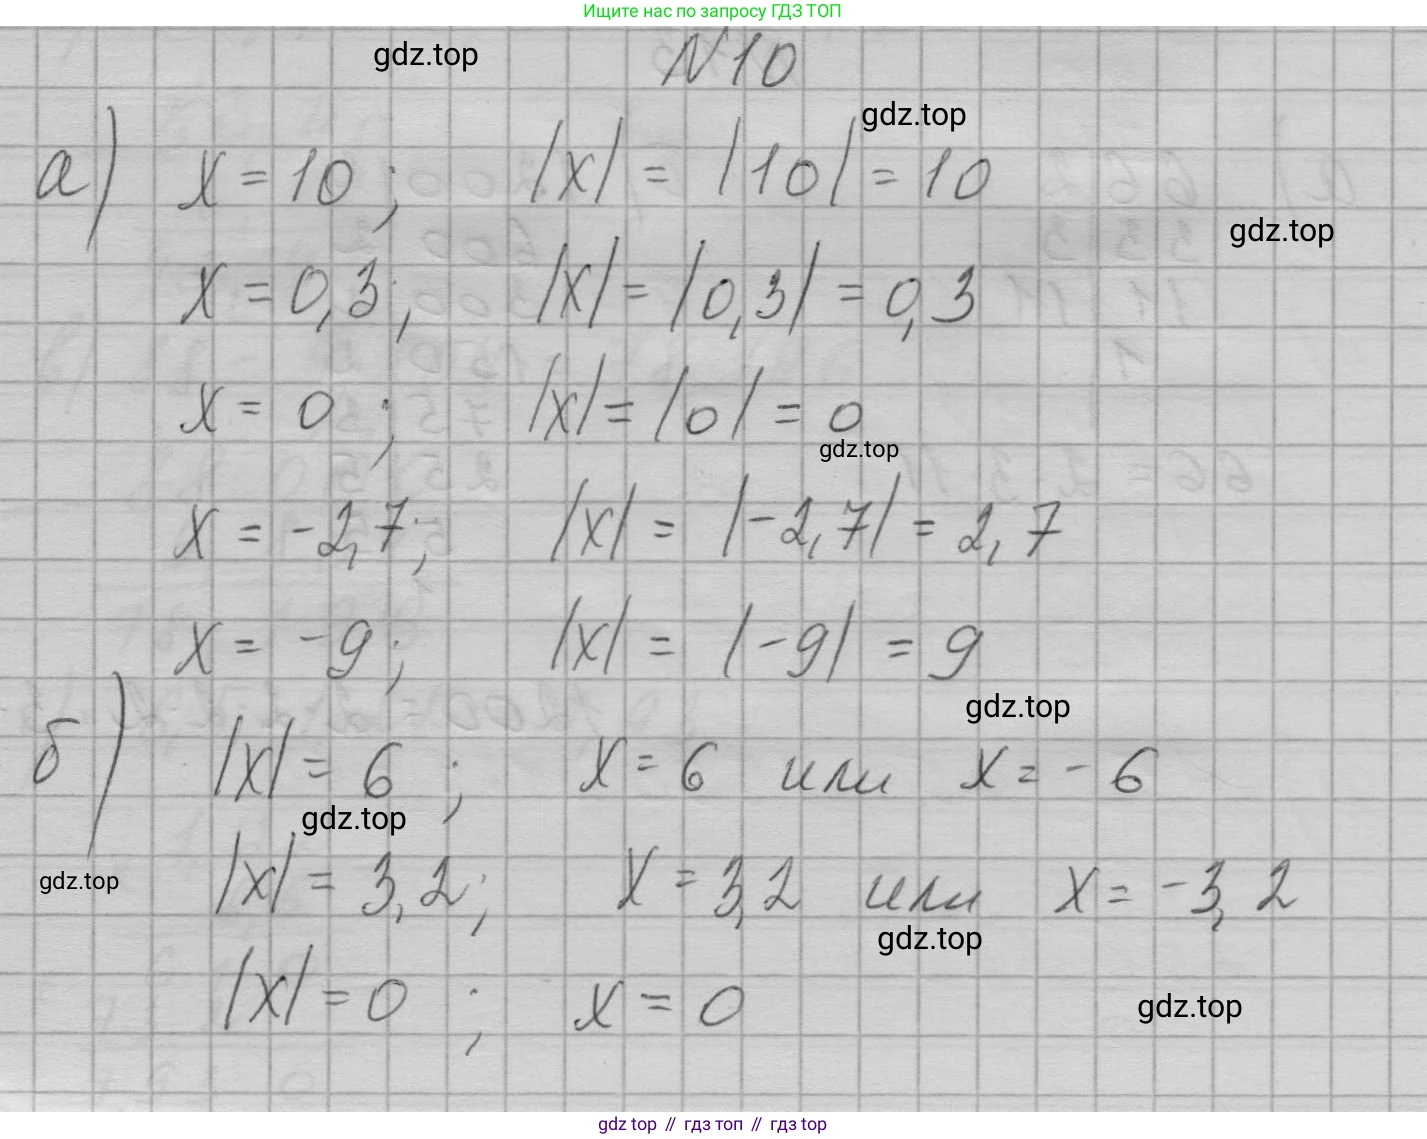 Ищите нас по запросу ГДЗ ТОП
gdz.top
N10
gdz.top
а) x = 10; |x| = |10| = 10
gdz.top
x = 0,3; |x| = |0,3| = 0,3
x = 0; |x| = |0| = 0
gdz.top
x = -2,7; |x| = |-2,7| = 2,7
x = -9; |x| = |-9| = 9
gdz.top
б) |x| = 6; x = 6 или x = -6
gdz.top
|x| = 3,2; x = 3,2 или x = -3,2
gdz.top
gdz.top
|x| = 0; x = 0
gdz.top
gdz top // гдз топ // гдз top